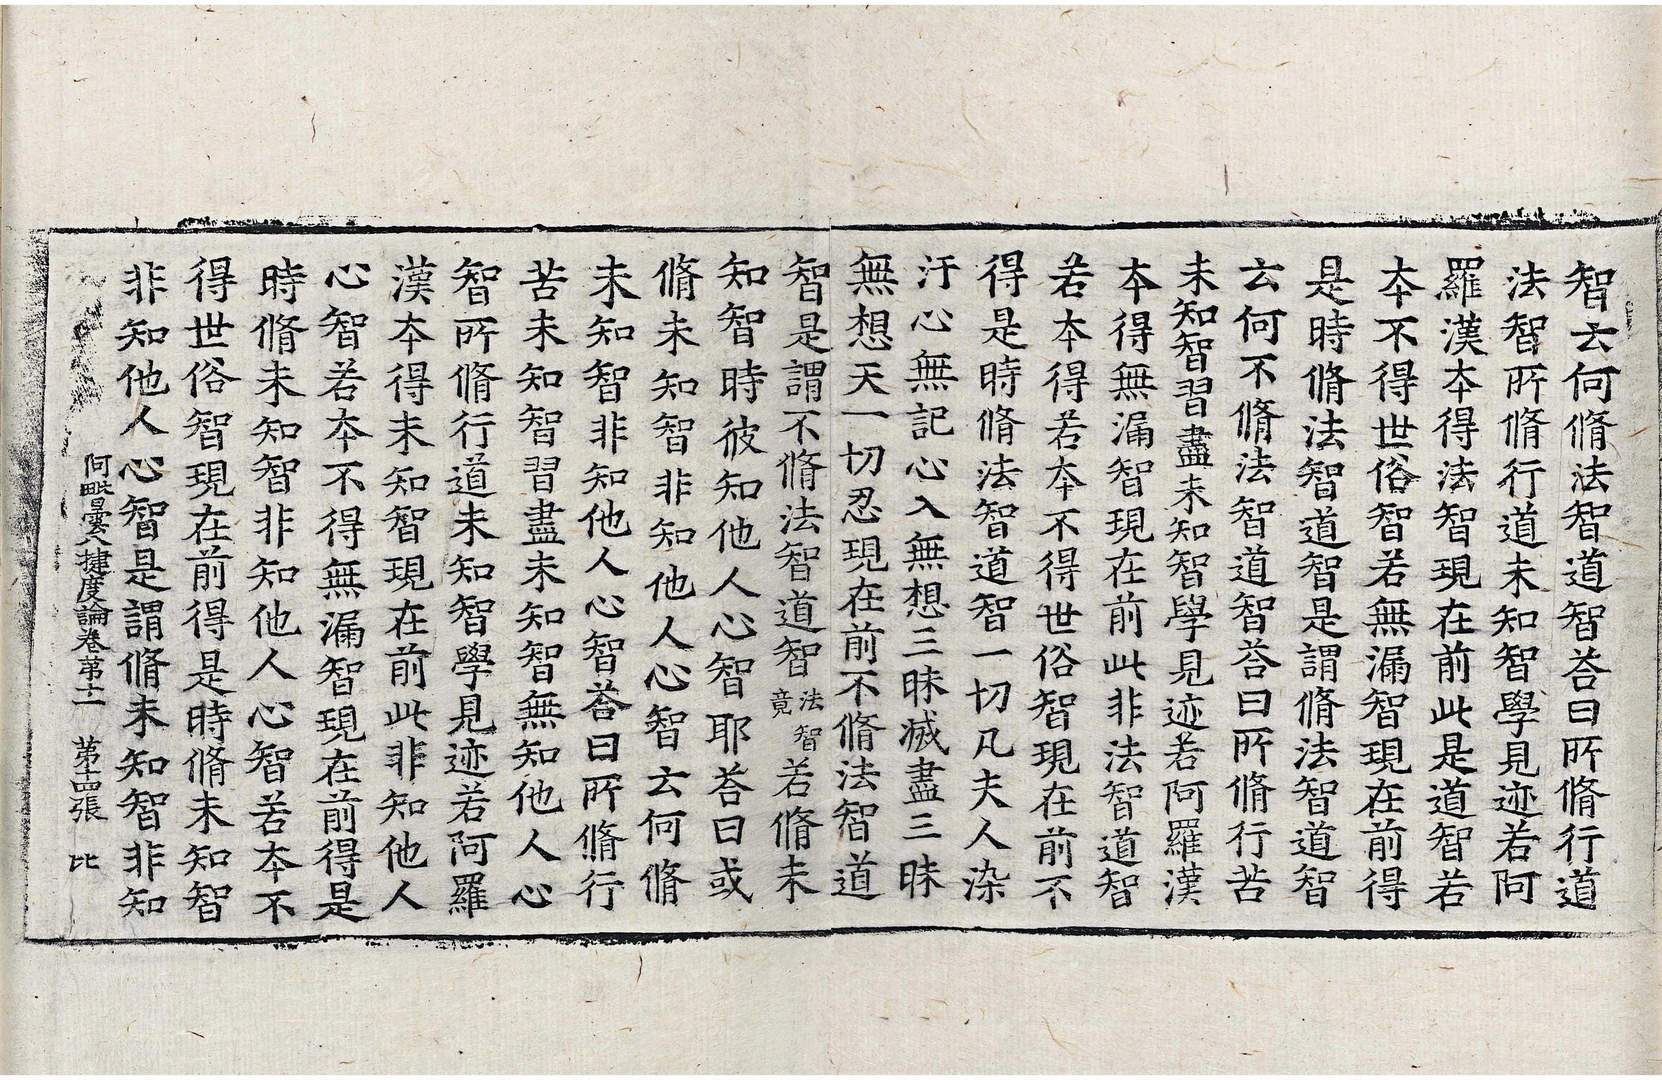 智云何脩法智道智荅曰所脩行道
法智所脩行道未知智學見迹若阿
羅漢本得法智現在前此是道智若
本不得世俗智若無漏智現在前得
是時脩法智道智是謂脩法智道智
云何不脩法智道智荅曰所脩行苦
未知智習盡未知智學見迹若阿羅漢
本得無漏智現在前此非法智道智
若本得若本不得世俗智現在前不
得是時脩法智道智一切凡夫人染
汙心無記心入無想三昧滅盡三昧
無想天一切忍現在前不脩法智道
智是謂不脩法智道智法智竟若脩未
知智時彼知他人心智耶荅曰或
脩未知智非知他人心智云何脩
未知智非知他人心智荅曰所脩行
苦未知智習盡未知智無知他人心
智所脩行道未知智學見迹若阿羅
漢本得未知智現在前此非知他人
心智若本不得無漏智現在前得是
時脩未知智非知他人心智若本不
得世俗智現在前得是時脩未知智
非知他人心智是謂脩未知智非知
阿毗曇八揵度論卷第十二 第十四張 比